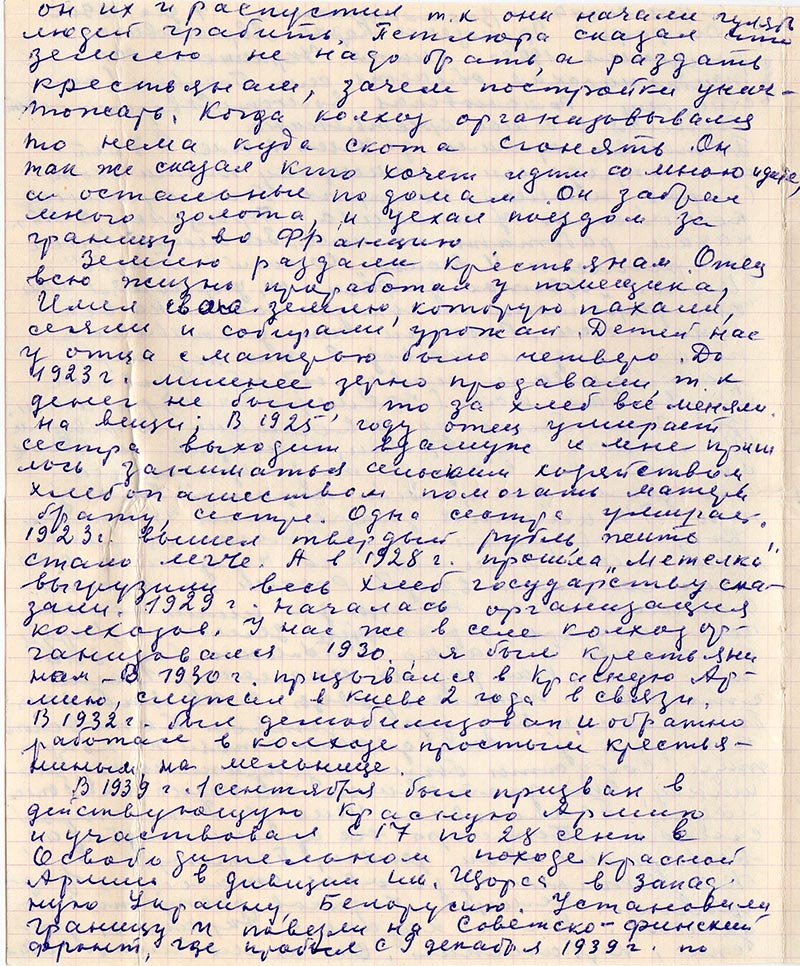 он их и распустил т.к они начали гулять
людей грабить. Петлюра сказал что
землю не надо брать, а раздать
крестьянам, зачем постройки унич-
тожать. Когда колхоз организовывался
то нема куда скота сгонять. Он
так же сказал кто хочет идти со мною идите,
а остальные по домам. Он забрал
много золота, и уехал поездом за
границу во Францию
Землю раздали крестьянам. Отец
всю жизнь проработал у помещика,
Имел свою землю, которую пахали,
сеяли и собирали, урожай. Детей нас
у отца с матерью было четверо. До
1923 г. млинее зерно продавали т.к
денег не было, то за хлеб всё меняли
на вещи; В 1925 году отец умирает
сестра выходит взамуж и мне приш
лось заниматься сельским хозяйством
хлебопашеством помогать матери
брату, сестре. Одна сестра умирает.
1923 г. вышел твердый рубль жить
стало легче. А в 1928 г. прошла „Метелка"
выгрузили весь хлеб государству ска-
зали. 1929 г. началась организация
колхозов. У нас же в селе колхоз ор-
ганизовался 1930. я был крестьяни
ном – В 1930 г. призывался в Красную Ар-
мию, служил в Киеве 2 года в связи.
В 1932 г. был демобилизован и обратно
работал в колхозе простым крестья-
нином, на мельнице.
В 1939 г. 1 сентября был призван в
действующую Красную Армию
и участвовал с 17 по 28 сент в
Освободительном походе Красной
Армии в дивизии им. Щорса в Запад.
ную Украину, Белорусию. Установили
границу и повезли на Советско-финский
фронт, где пробыл с 9 декабря 1939 г. по